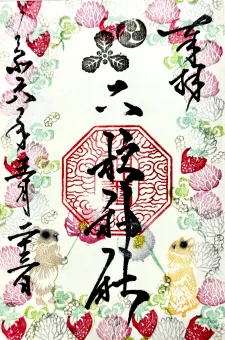 奉拝
六所神社
令和六年五月二十三日